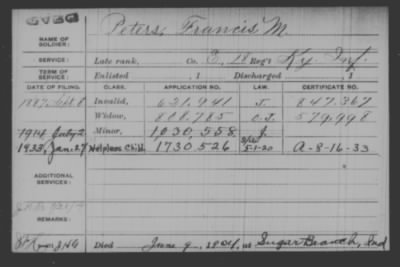 NAME OF SOLDIER: Peters, Francis M.
SERVICE: Late rank, Co. E, 18 Reg't Ky. Inf.
TERM OF SERVICE: Enlisted , 1 Discharged , 1
DATE OF FILING. CLASS. APPLICATION NO. LAW. CERTIFICATE NO.
1887, Sept. 8 Invalid, 621,941 J. 847,367
Widow, 808,785 O.J. 579,998
1914 July 2 Minor, 1,030,558 J.
1933, Jan. 27 Helpless Child 1730,526 5-1-20 A-8-16-33
ADDITIONAL SERVICES:
REMARKS:
Died June 9, 1904, at Sugar Branch, Ind